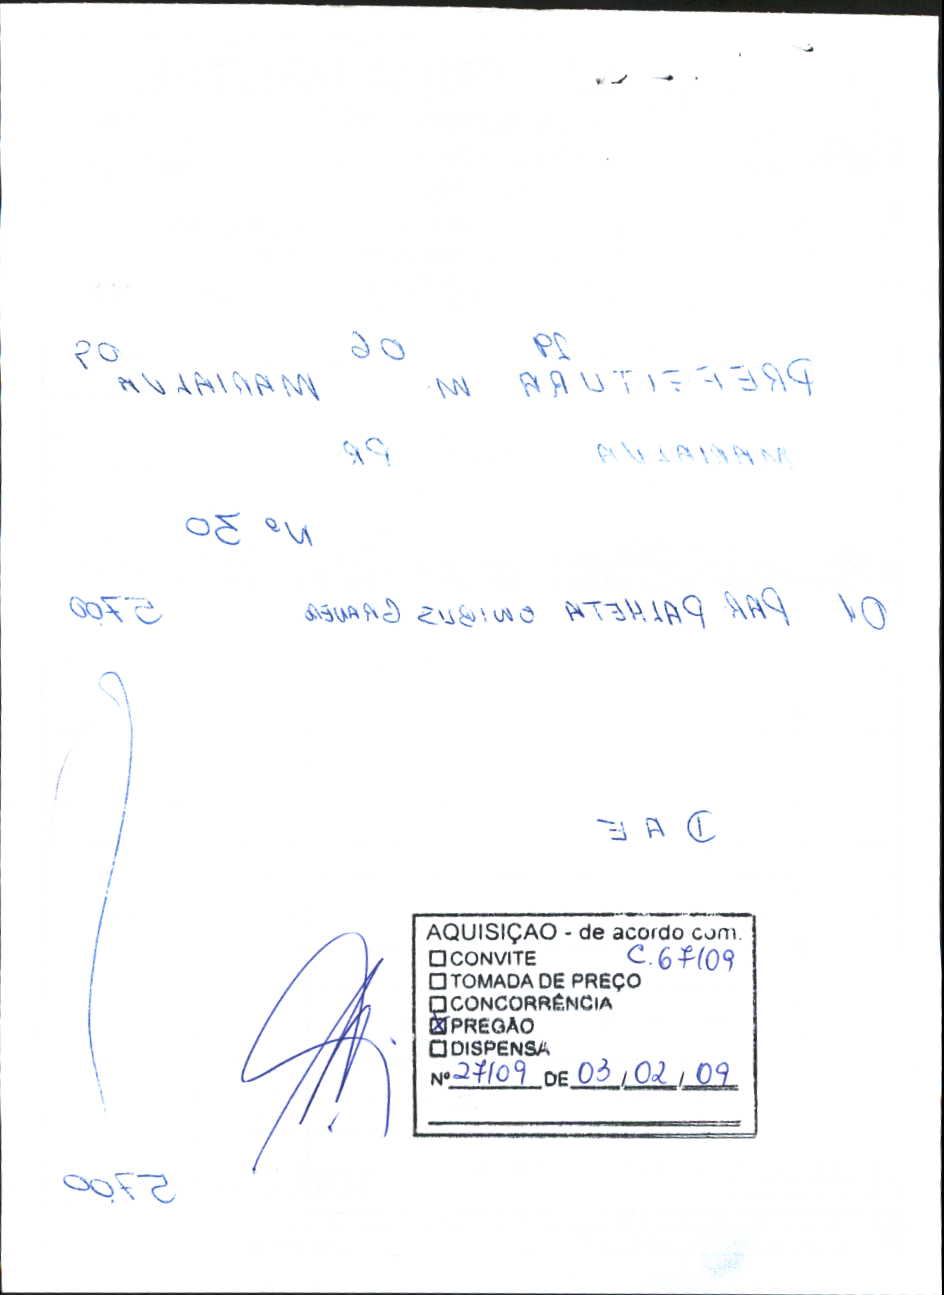 29 06 09
PREFEITURA M. MARIALVA
MARIALVA PR
Nº 30
01 PAR PALHETA ONIBUS 5700
D A E
AQUISIÇAO - de acordo com.
☐ CONVITE C.67/09
☐ TOMADA DE PREÇO
☐ CONCORRÊNCIA
☒ PREGÃO
☐ DISPENSA
Nº 27/09 DE 03 / 02 / 09
5700